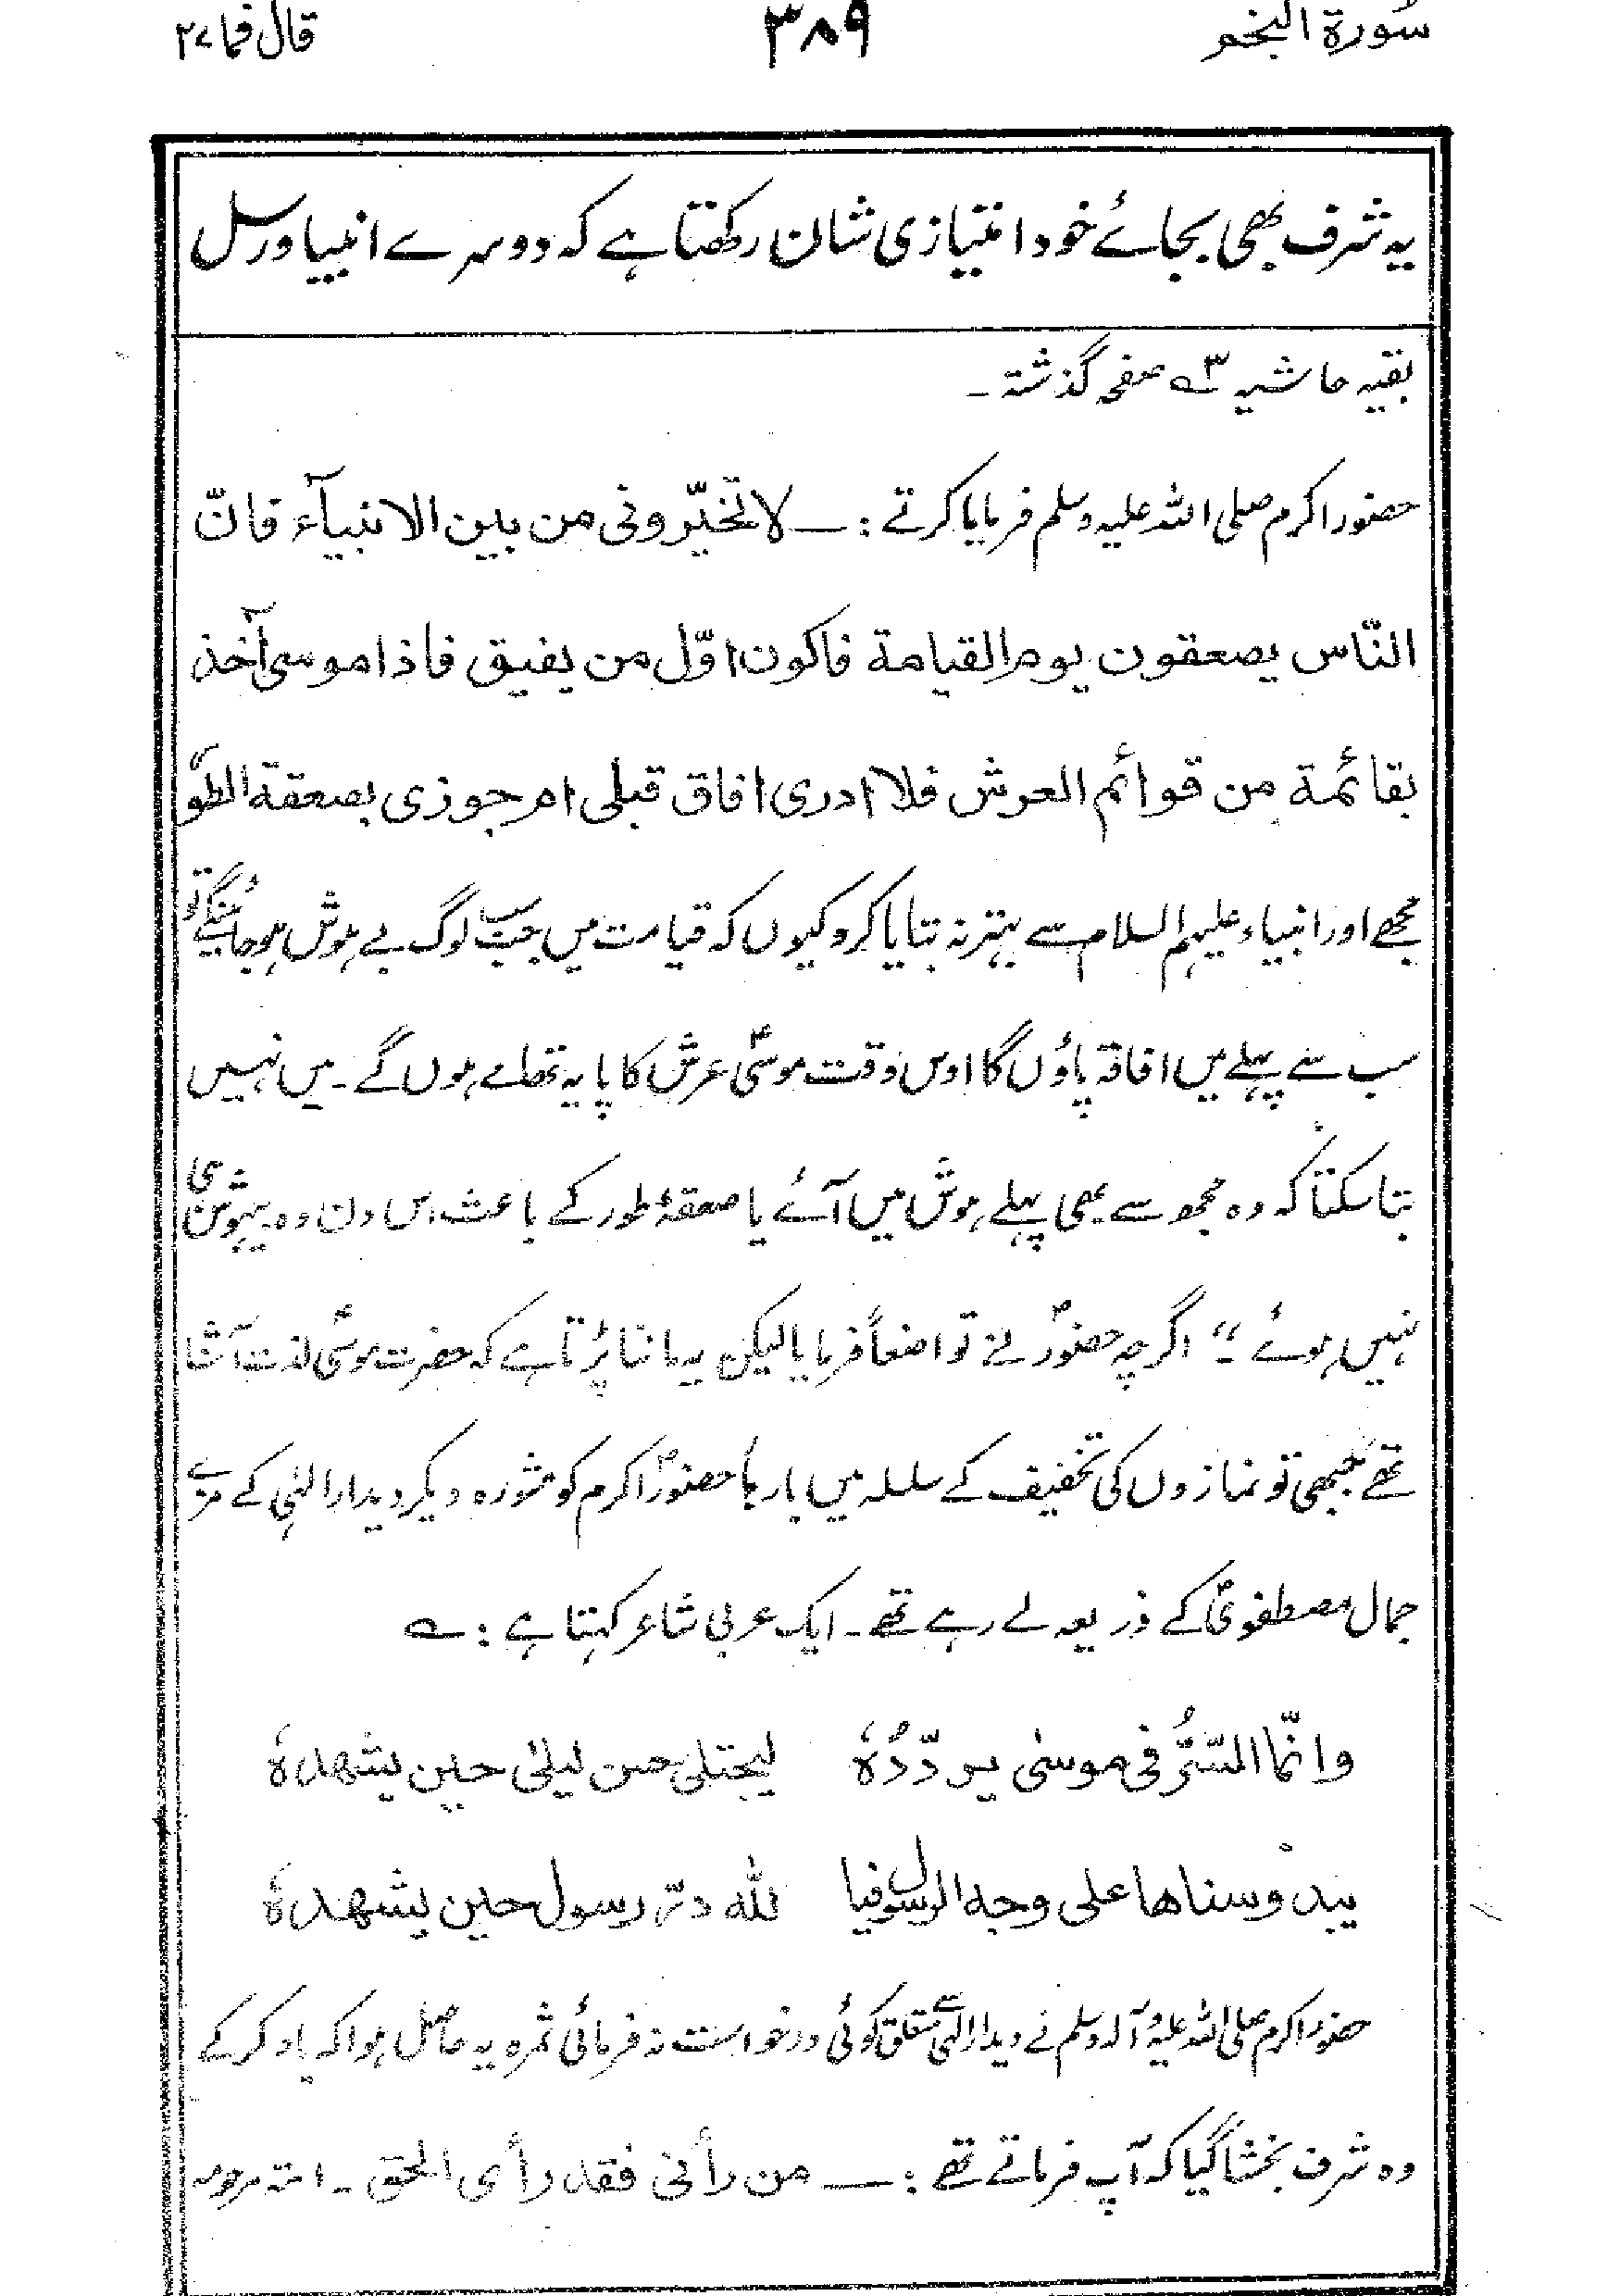 سورة النجم
۳۸۹
قال فما ۲۷
یہ شرف بھی بجائے خود امتیازی شان رکھتا ہے کہ دوسرے انبیا ورسل
بقیہ حاشیہ ۳؎ صفحہ گذشتہ ۔
حضور اکرم صلی اللہ علیہ وسلم فرمایا کرتے :ــ لا تخیّرونی من بین الانبیآء فانّ
النّاس یصعقون یوم القیامة فاکون اوّل من یفیق فاذا موسیٰ آخذ
بقائمة من قوائم العرش فلا ادری افاق قبلی ام جوزی بصعقة الطور
مجھے اور انبیاء علیہم السلام سے بہتر نہ بتایا کرو کیوں کہ قیامت میں جب سب لوگ بے ہوش ہو جائینگے تو
سب سے پہلے میں افاقہ پاؤں گا اوس وقت موسیٰؑ عرش کا پایہ تھامے ہوں گے ۔ میں نہیں
بتا سکتا کہ وہ مجھ سے بھی پہلے ہوش میں آئے یا صعقۂ طور کے باعث اس دن وہ بیہوش ہی
نہیں ہوئے ؛؛ اگرچہ حضورؐ نے تواضعاً فرمایا لیکن یہ ماننا پڑتا ہے کہ حضرت موسیٰؑ لذت آشنا
تھے جبھی تو نمازوں کی تخفیف کے سلسلہ میں بار بار حضورؐ اکرم کو مشورہ دیکر دیدار الٰہی کے مزے
جمال مصطفویؐ کے ذریعہ لے رہے تھے ۔ ایک عربی شاعر کہتا ہے :ــ؎
وانّما السّرُّ فی موسیٰ یردّدُہٗ لیجتلی حسن لیلیٰ حین یشهدہٗ
یبدو سناها علی وجه الرسول فیا للہ درّ رسول حین یشهدہٗ
حضور اکرم صلی اللہ علیہ وآلہ وسلم نے دیدار الٰہی سے متعلق کوئی درخواست نہ فرمائی ثمرہ یہ حاصل ہوا کہ یاد کرکے
وہ شرف بخشا گیا کہ آپ فرماتے تھے :ــ من رأنی فقد رأی الحق ۔ امتہ مرحومہ